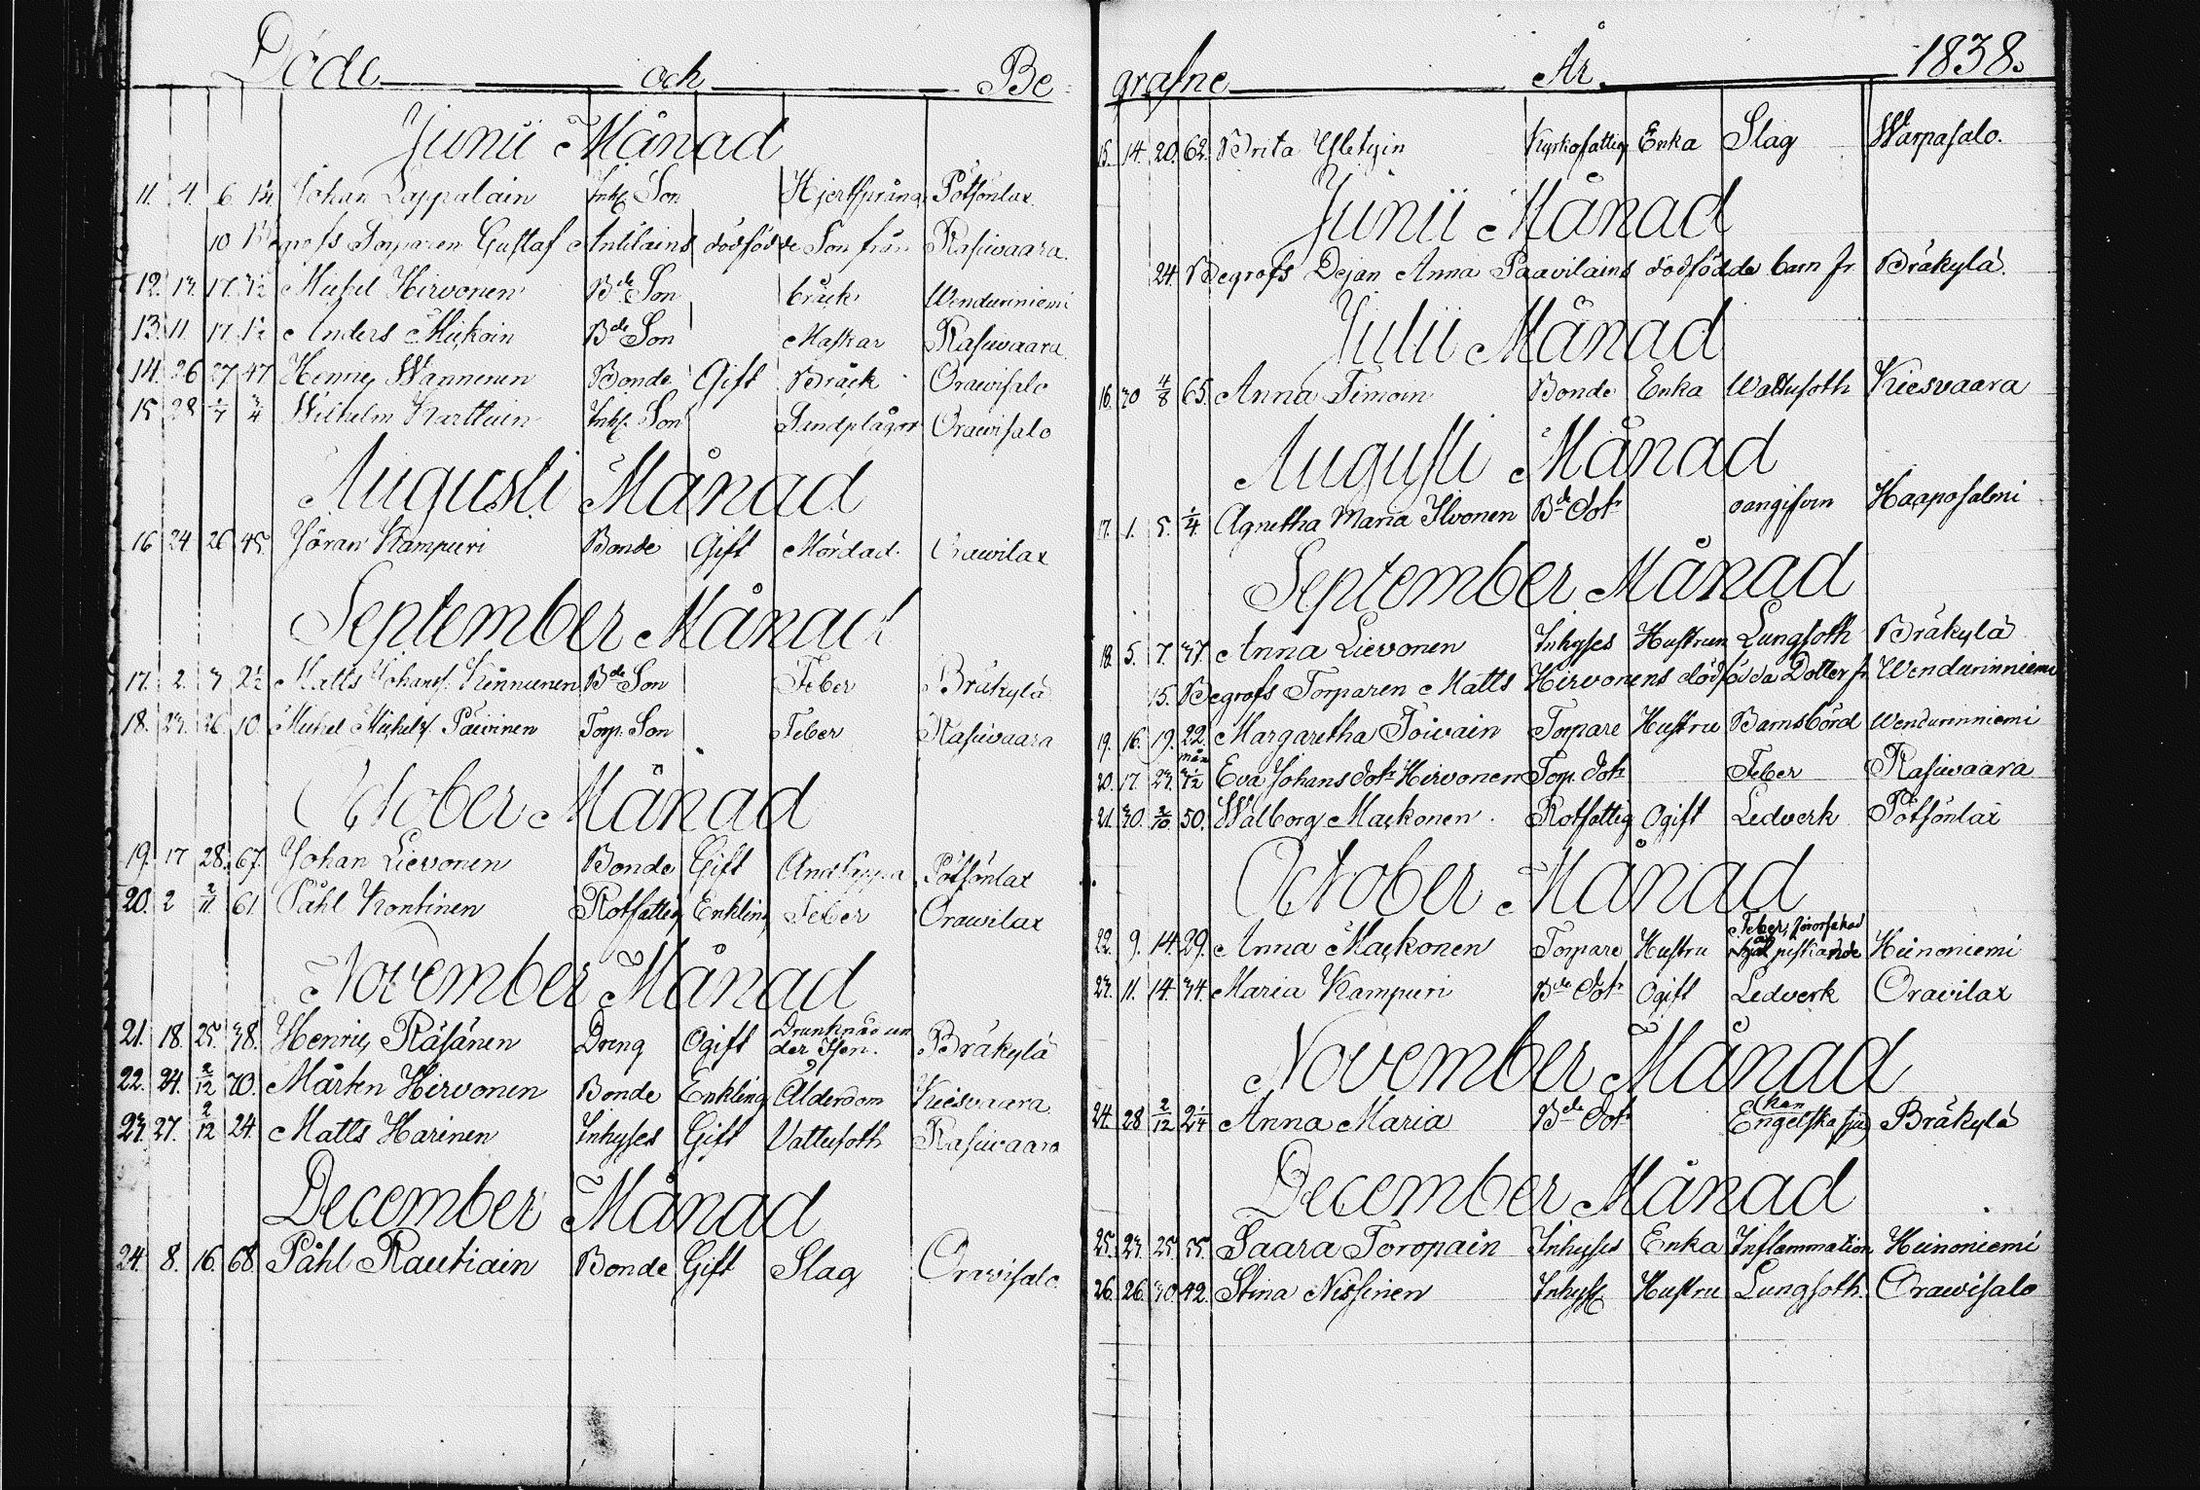 Döde och Be-
Junii Månad
11. 4. 6 1¼ Johan Lappalain Inh. Son Hjertspräng Pötsönlax
10 Begrofs Torparen Gustaf Antilains dödfödde Son från Rasiwaara.
12. 13. 17. 3½ Michel Hirvonen Bde Son bråck Wenduriniemi
13. 11. 17. 1½ Anders Mickoin Bde Son Maskar Rasiwaara.
14. 26 27 47 Henric Wannenen Bonde Gift Bråck Orawisalo
15 28 1/7 ¾ Wilhelm Karttuin Inh. Son Tandplågor Orawisalo
Augusti Månad
16 24 26 45. Jöran Kampuri Bonde Gift Mördad. Orawilax
September Månad
17. 2. 3 2½ Matts Johans. Kinnunen Bde Son Feber Bräkylä
18. 23. 26. 10. Michel Michels. Päivinen Torp. Son Feber Rasiwaara
October Månad
19. 17 28. 67. Johan Lievonen Bonde Gift Pötsönlax
20. 2 2/11. 61 Påhl Kontinen Rotfattig Enkling Feber Orawilax
November Månad
21. 18. 25. 38. Henric Räsänen Dreng Ogift Drunknad un
der Isen. Bräkylä
22. 24. 2/12 70. Mårten Hirvonen Bonde Enkling Ålderdom Kiesvaara
23. 27. 2/12 24. Matts Harinen Inhyses Gift Vattusoth Rasiwaara
December Månad
24. 8. 16. 68 Påhl Rautiain Bonde Gift Slag Orawisalo.
grafne År. 1838.
15. 14. 20. 62. Brita Kyrkofattig Enka Slag Warpasalo.
Junii Månad
24. Begrofs Dejan Anna Paavilains dödfödde barn fr Bräkylä.
Julii Månad
16. 30 4/8 65. Anna Timoin Bonde Enka Wattusoth Kiesvaara
Augusti Månad
17. 1. 5. ¼. Agnetha Maria Ilvonen Bde Dotr oangifven Haaposalmi
September Månad
18. 5. 7. 37. Anna Lievonen Inhyses Hustrun Lungsoth Bräkylä
15. Begrofs Torparen Matts Hirvonens dödfödda Dotter fr Wendurinniemi
19. 16. 19. 22. Margaretha Toivain Torpare Hustru Barnsbörd Wendurinniemi
mån
20. 17. 23. 3½ Eva Johans Dotr Hirvonen Torp. Dotr Feber Rasiwaara
21. 30. 2/10 50. Walborg Mackonen. Rotfattig Ogift Ledverk Pötsönlax
October Månad
22. 9. 14. 29. Anna Mackonen Torpare Hustru Feber, Heinoniemi
23. 11. 14. 34. Maria Kampuri Bde Dotr Ogift Ledverk Oravilax
November Månad
24. 28 2/12 2¼ Anna Maria Bde Dotr Engelska sjuk Bräkylä
December Månad
25. 23. 25. 55. Saara Toropain Inhyses Enka Inflammation Heinoniemi
26. 26. 30. 42. Stina Nissinen Inhys. Hustru Lungsoth. Orawisalo